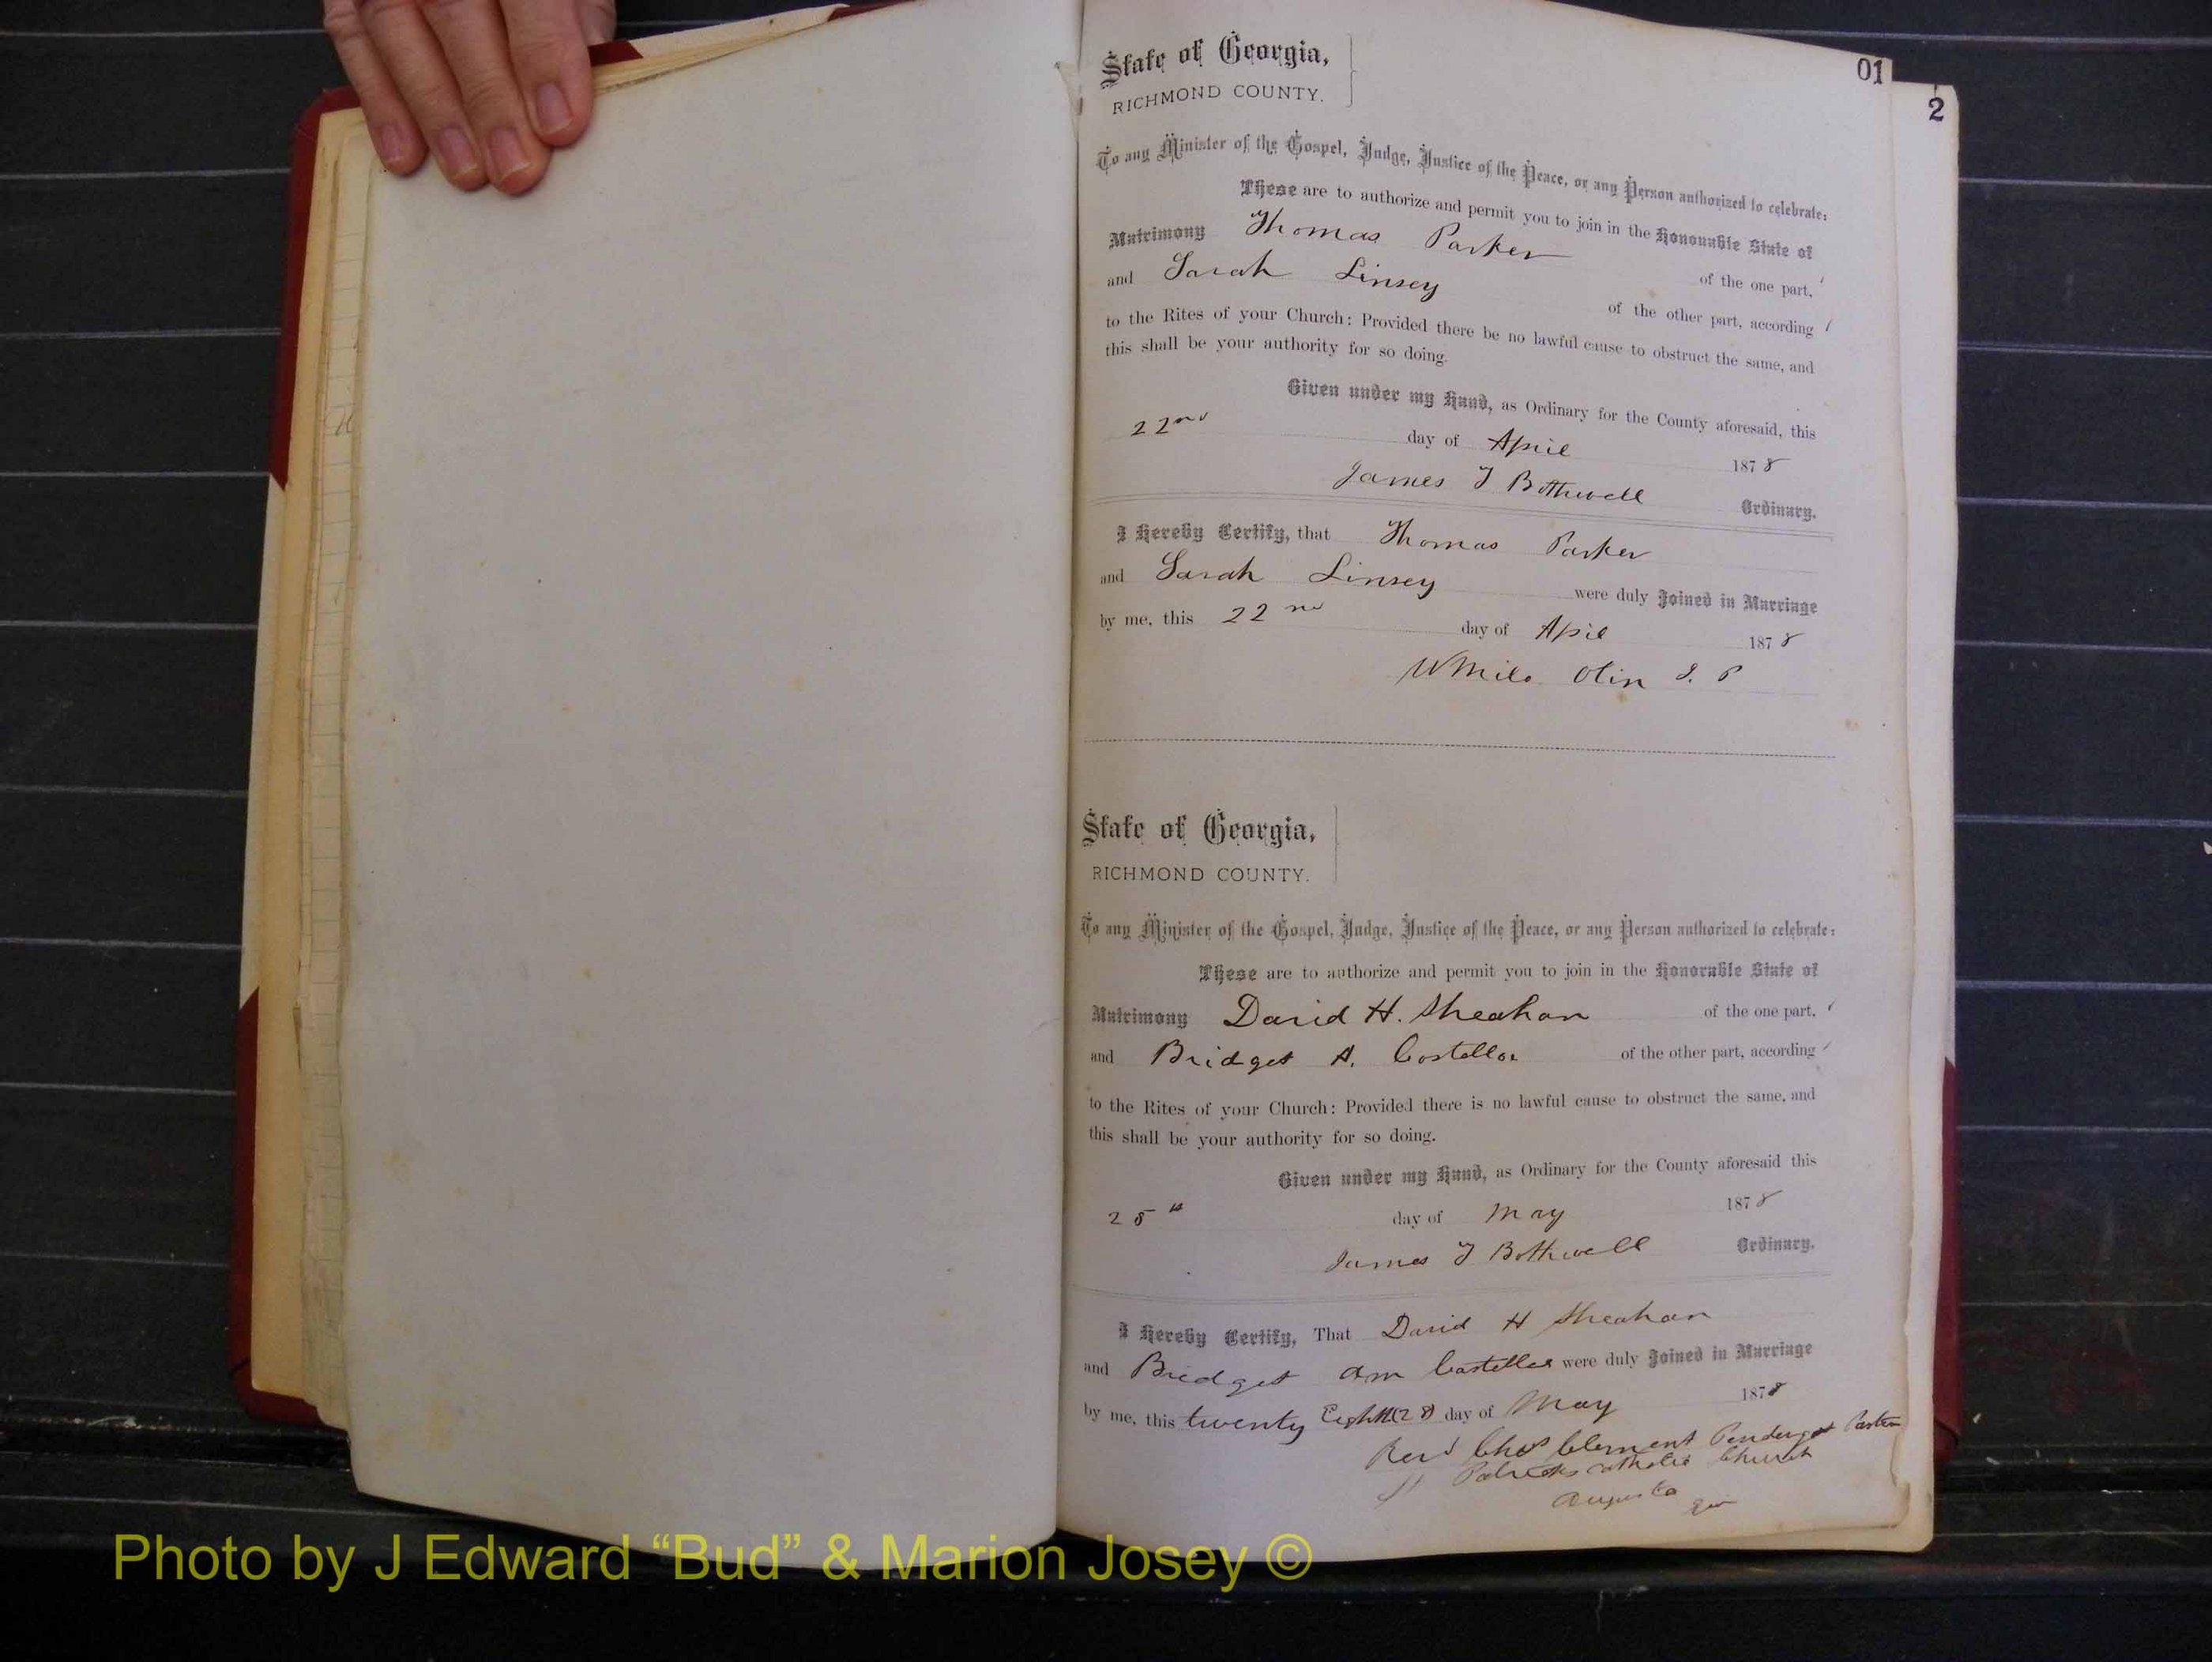 01
2
State of Georgia,
RICHMOND COUNTY.
To any Minister of the Gospel, Judge, Justice of the Peace, or any Person authorized to celebrate:
These are to authorize and permit you to join in the Honourable State of
Matrimony Thomas Parker of the one part,
and Sarah Linsey of the other part, according
to the Rites of your Church: Provided there be no lawful cause to obstruct the same, and
this shall be your authority for so doing.
Given under my Hand, as Ordinary for the County aforesaid, this
22nd day of April 1878
James T Bothwell Ordinary.
I Hereby Certify, that Thomas Parker
and Sarah Linsey were duly Joined in Marriage
by me, this 22nd day of April 1878
W Milo Olin J. P
State of Georgia,
RICHMOND COUNTY.
To any Minister of the Gospel, Judge, Justice of the Peace, or any Person authorized to celebrate:
These are to authorize and permit you to join in the Honorable State of
Matrimony David H. Sheahan of the one part,
and Bridget A. Costelloe of the other part, according
to the Rites of your Church: Provided there is no lawful cause to obstruct the same, and
this shall be your authority for so doing.
Given under my Hand, as Ordinary for the County aforesaid this
28th day of May 1878
James T Bothwell Ordinary.
I Hereby Certify, That David H Sheahan
and Bridget Costelloe were duly Joined in Marriage
by me, this twenty Eighth (28) day of May 1878
Revd Chas Clement Pendergast Pastor
St Patricks Catholic Church
Augusta
Photo by J Edward “Bud” & Marion Josey ©